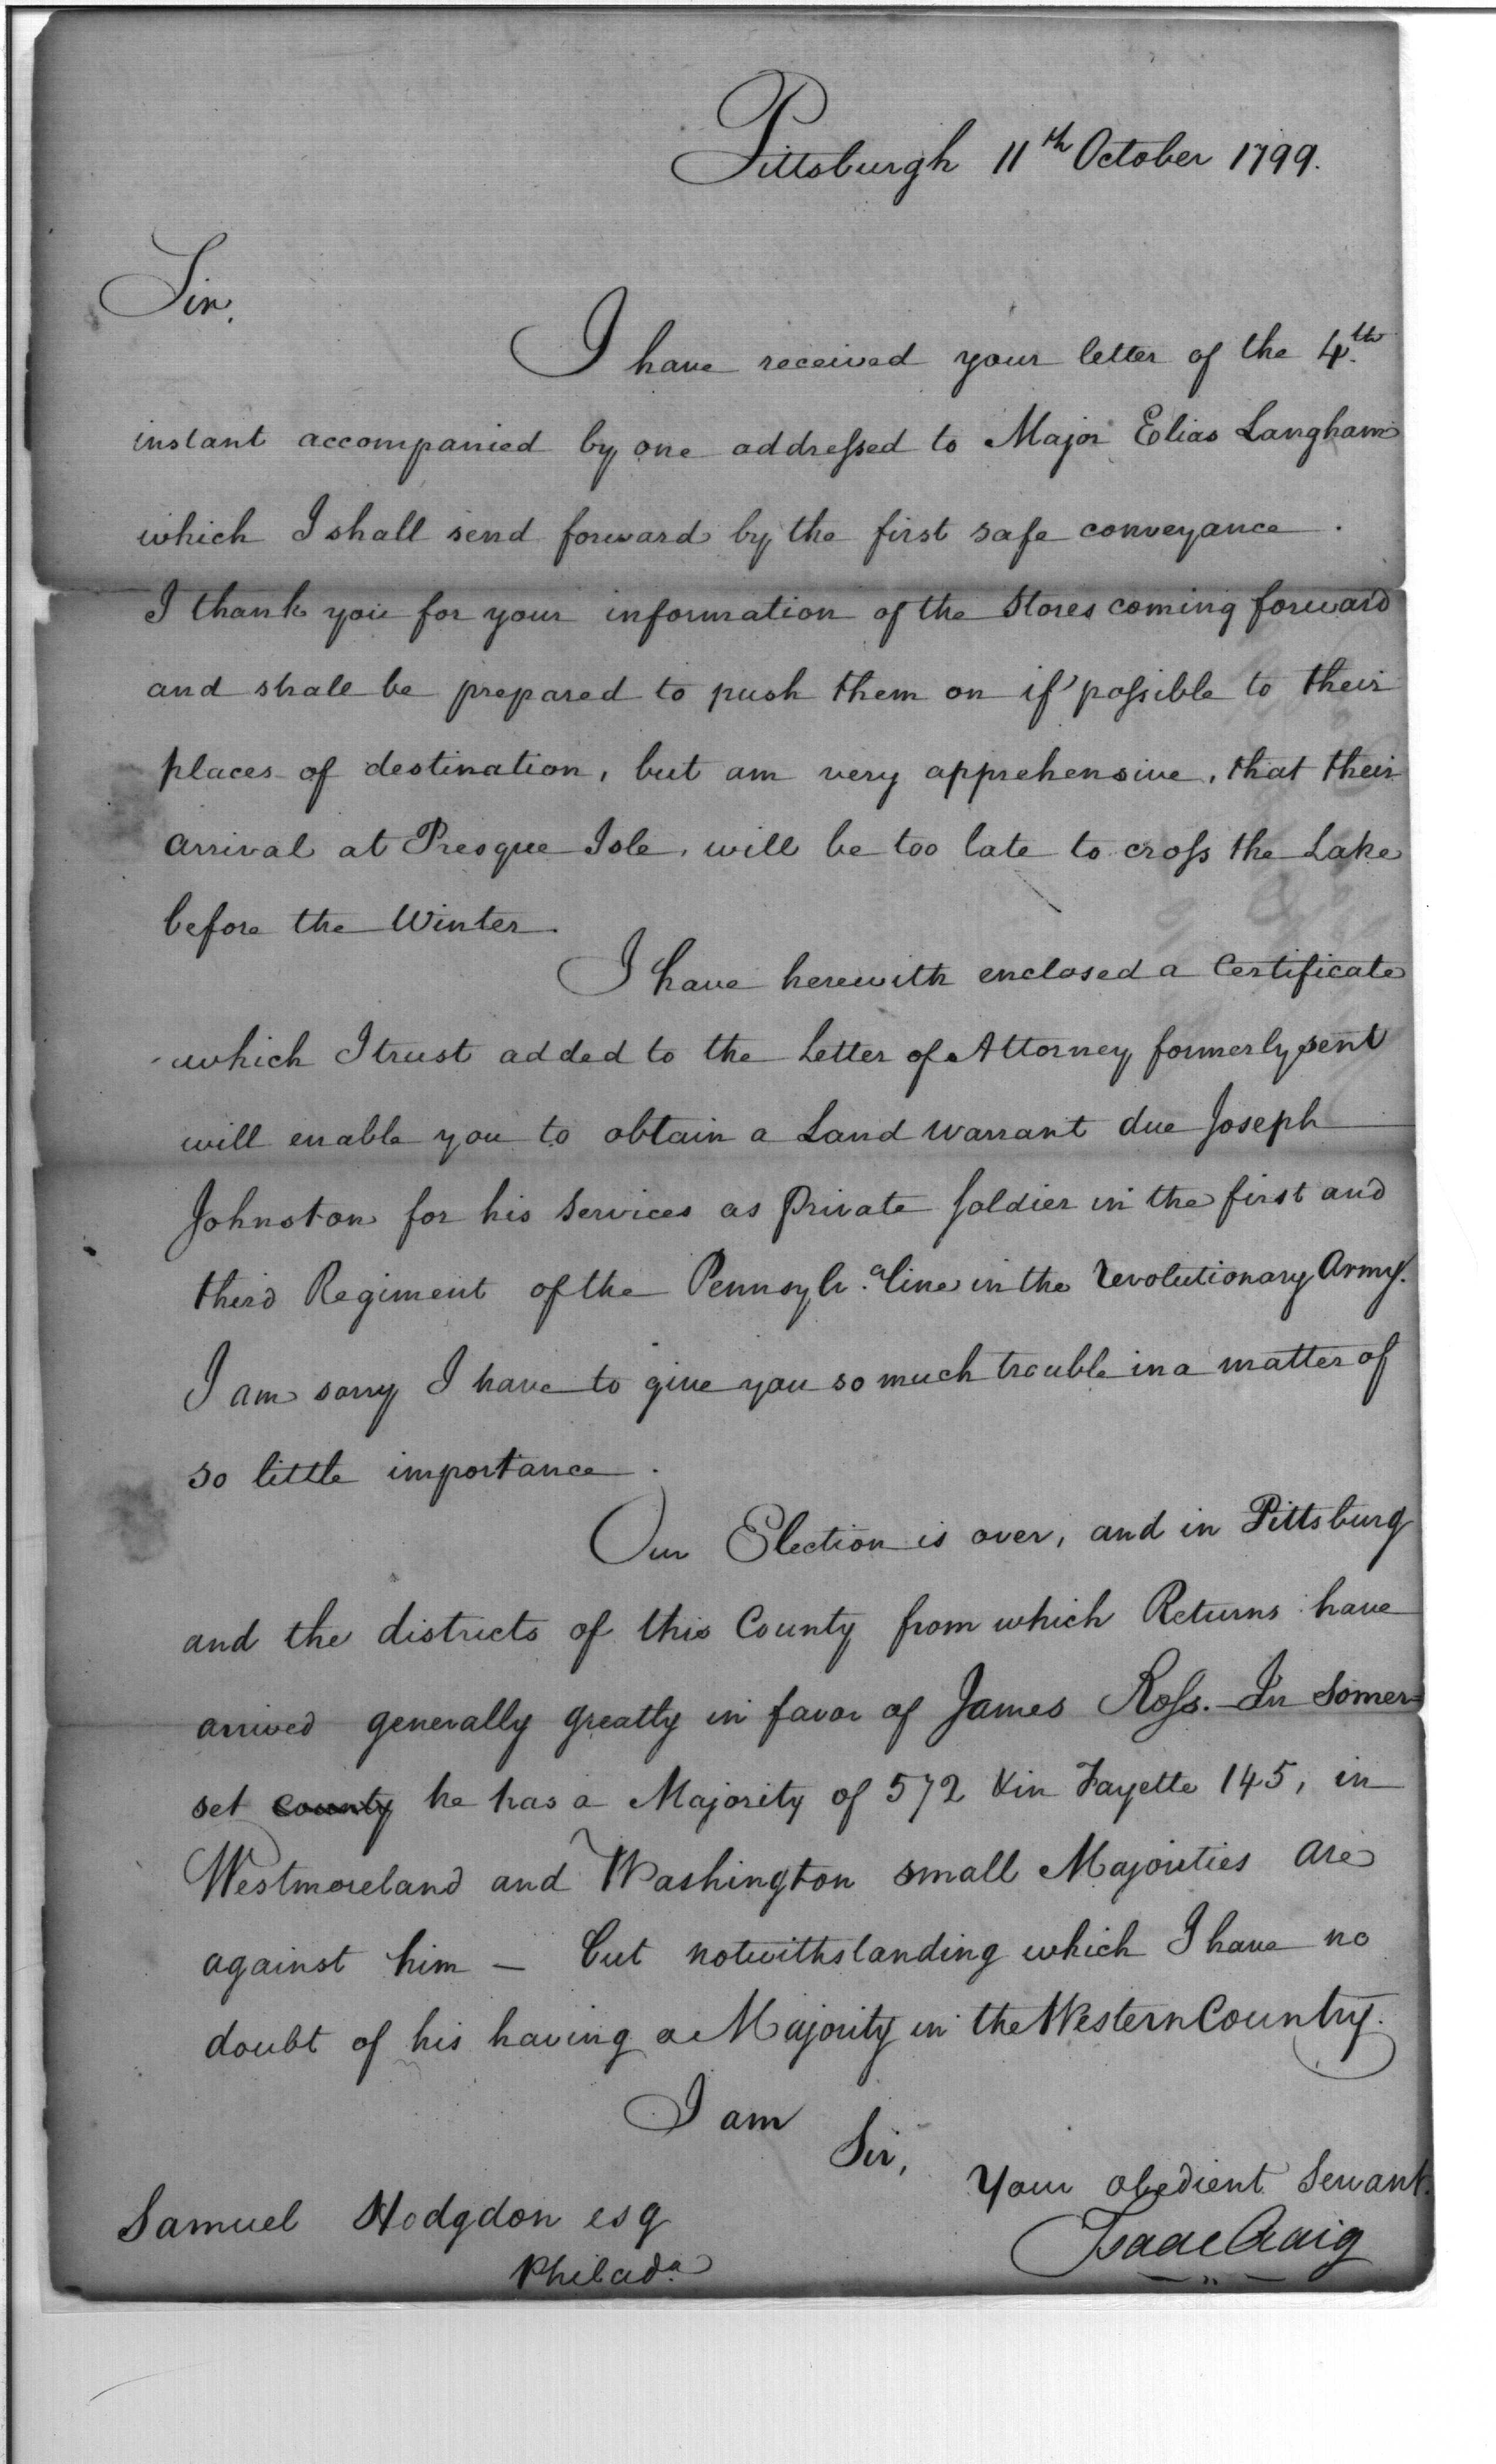 Pittsburgh 11th October 1799.
Sir,
I have received your letter of the 4th
instant accompanied by one addressed to Major Elias Langham
which I shall send forward by the first safe conveyance .
I thank you for your information of the Stores coming forward
and shall be prepared to push them on if possible to their
places of destination, but am very apprehensive, that their
arrival at Presque Isle, will be too late to cross the Lake
before the Winter.
I have herewith enclosed a Certificate
which I trust added to the Letter of Attorney formerly sent
will enable you to obtain a Land Warrant due Joseph
Johnston for his Services as Private Soldier in the first and
third Regiment of the Pennsylv.a line in the revolutionary Army.
I am sorry I have to give you so much trouble in a matter of
so little importance .
Our Election is over, and in Pittsburg
and the districts of this County from which Returns have
arrived generally greatly in favor of James Ross. In Somer-
set county he has a Majority of 572 & in Fayette 145, in
Westmoreland and Washington small Majorities are
against him – but notwithstanding which I have no
doubt of his having a Majority in the Western Country.
I am
Sir,
Your obedient Servant.
Isaac Craig
Samuel Hodgdon esq
Philada